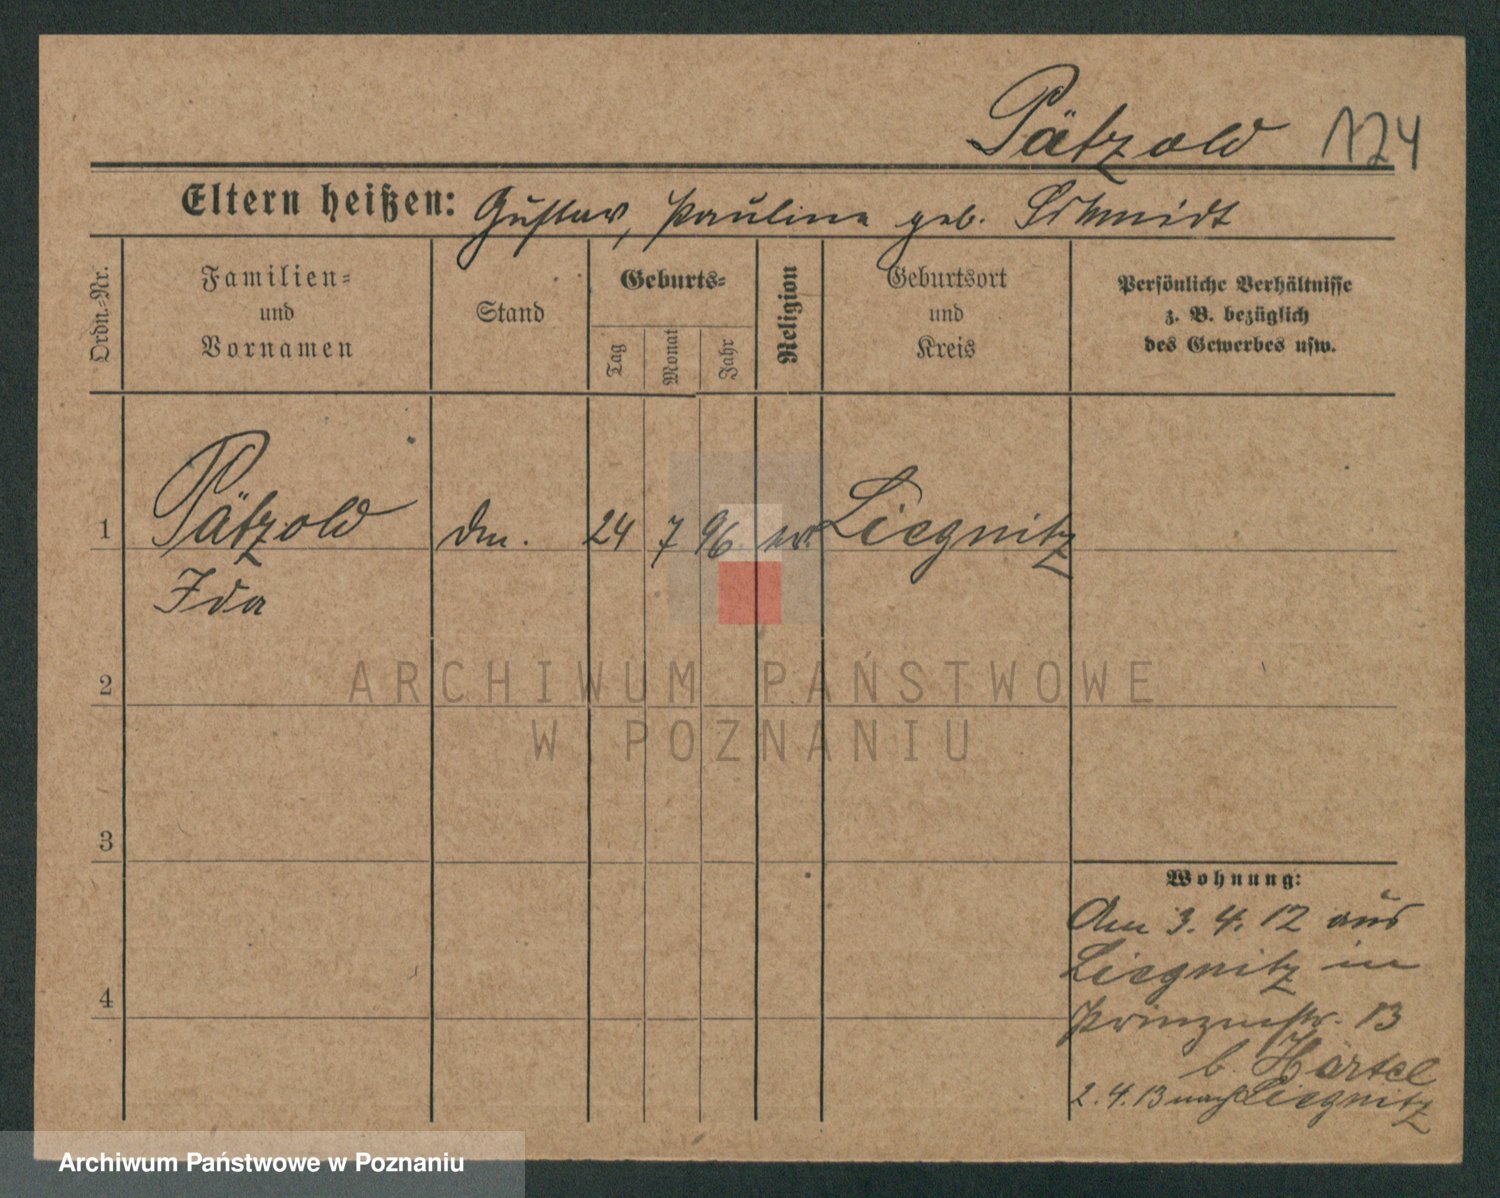 Pätzold 124
Eltern heißen: Gustav, Pauline geb. Schmidt
Ordn.-Nr.
Familien-
und
Vornamen
Stand
Geburts-
Tag
Monat
Jahr
Religion
Geburtsort
und
Kreis
Persönliche Verhältnisse
z. B. bezüglich
des Gewerbes usw.
1 Pätzold 24 7 96 ev. Liegnitz
Ida
2
3
4
Wohnung:
Am 3. 4. 12 aus
Liegnitz in
Prinzenstr. 13
b. Härtel
2. 4. 13 nach Liegnitz
ARCHIWUM PAŃSTWOWE
W POZNANIU
Archiwum Państwowe w Poznaniu